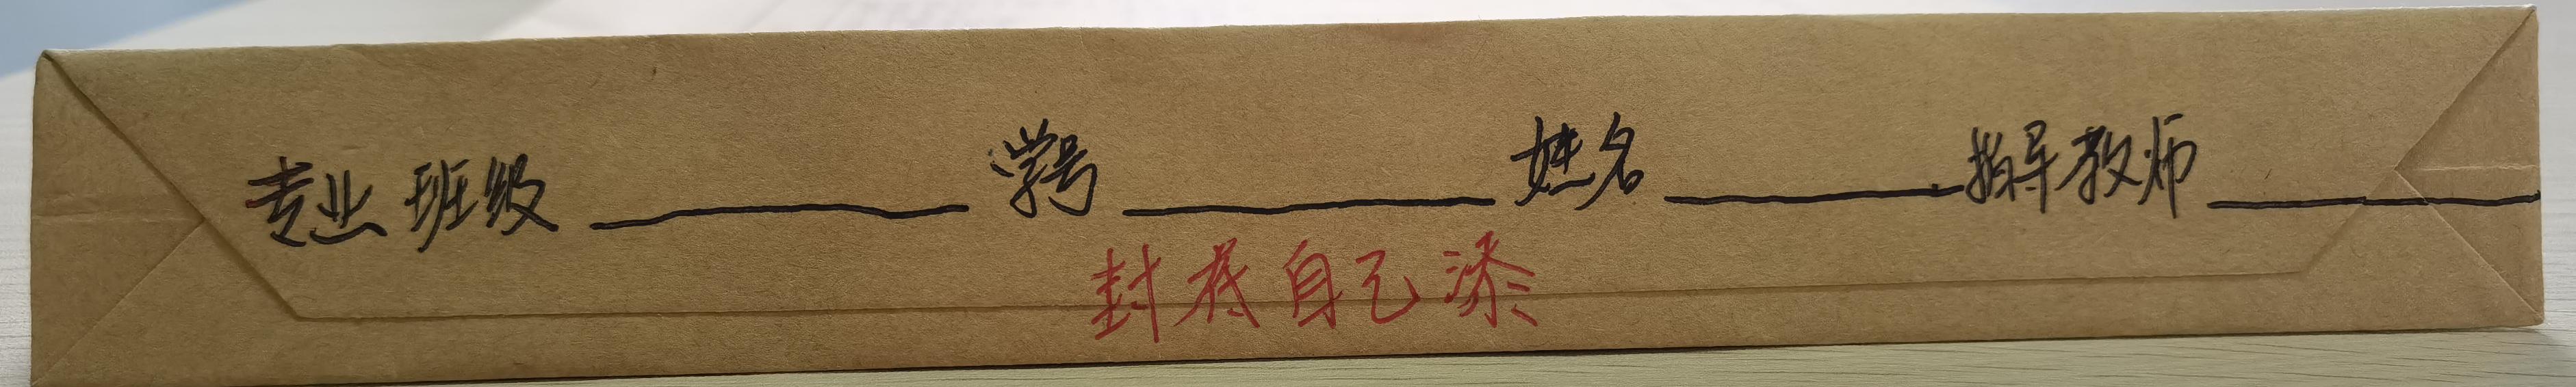 专业班级______学号______姓名______指导教师______
封底自己添